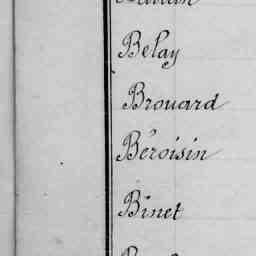 Belay
Brouard
Béroisin
Binet